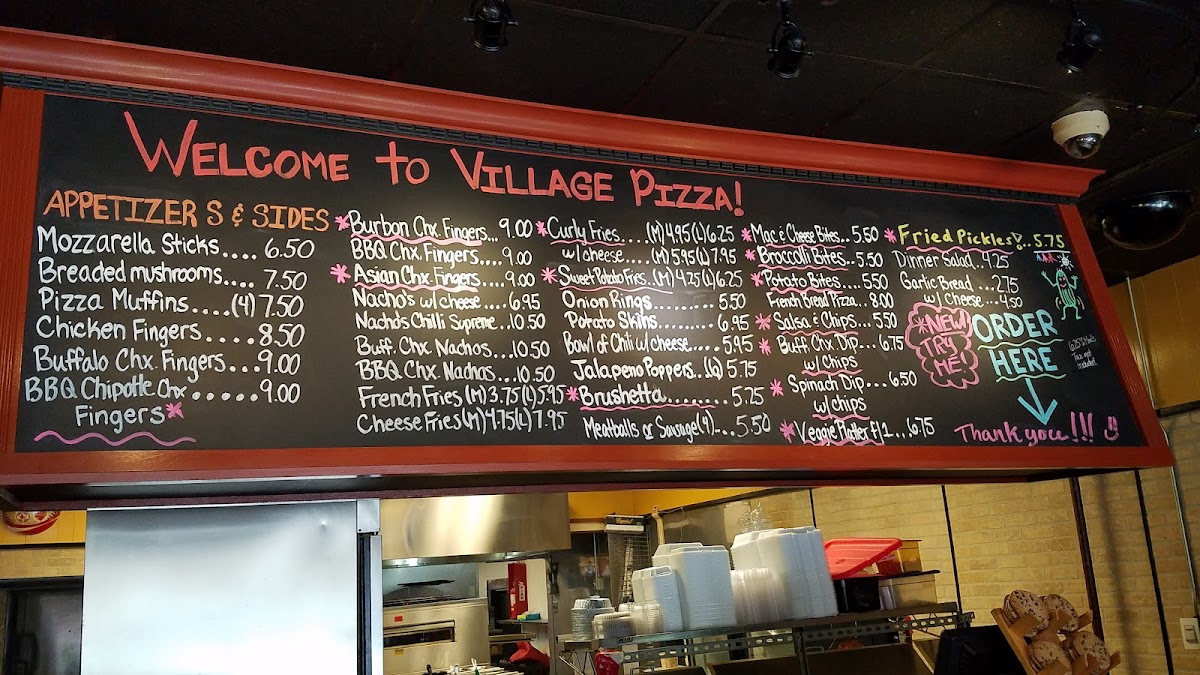 WELCOME to VILLAGE PIZZA!
APPETIZERS & SIDES
Mozzarella Sticks.... 6.50
Breaded mushrooms.... 7.50
Pizza Muffins....(4) 7.50
Chicken Fingers...... 8.50
Buffalo Chx. Fingers...9.00
BBQ Chipotle Chx .....9.00
Fingers*
*Burbon Chx Fingers... 9.00
BBQ Chx. Fingers....9.00
*Asian Chx. Fingers....9.00
Nacho's w/ cheese....6.95
Nacho's Chilli Supreme..10.50
Buff. Chx Nachos....10.50
BBQ Chx. Nachos...10.50
French Fries (M)3.75(L)5.95
Cheese Fries(M)4.75(L)7.95
*Curly Fries....(M)4.95(L)6.25
w/ cheese....(M)5.95(L)7.95
*Sweet Potato Fries..(M)4.25(L)6.25
Onion Rings.......... 5.50
Potato Skins......... 6.95
Bowl of Chili w/ cheese..... 5.95
Jalapeno Poppers..(6) 5.75
*Brushetta........ 5.25
Meatballs or Sausage(4)... 5.50
*Mac & Cheese Bites.. 5.50
*Broccoli Bites.. 5.50
*Potato Bites.... 5.50
French Bread Pizza.. 8.00
*Salsa & Chips... 5.50
*Buff. Chx Dip... 6.75
w/ Chips
*Spinach Dip... 6.50
w/ chips
*Veggie Platter ...6.75
*Fried Pickles!... 5.75
Dinner Salad..4.25
Garlic Bread ...2.75
w/ Cheese..4.50
*NEW
TRY
ME!
ORDER
HERE
Tax not
included
Thank you!!!